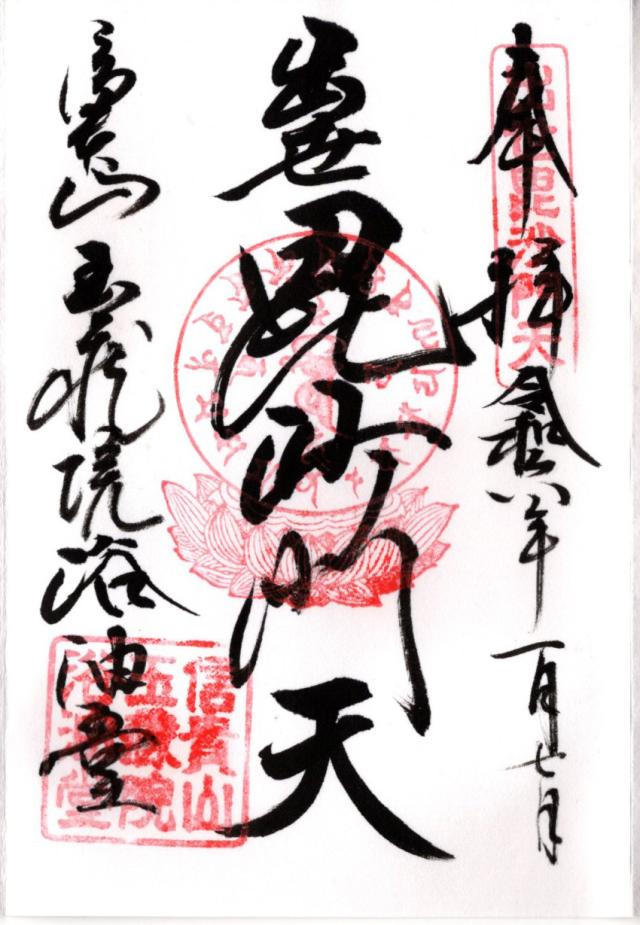 奉拝 令和六年 一月七日
出世毘沙門天
出世毘沙門天
信貴山 玉蔵院浴油堂
信貴山
玉蔵院
浴油堂